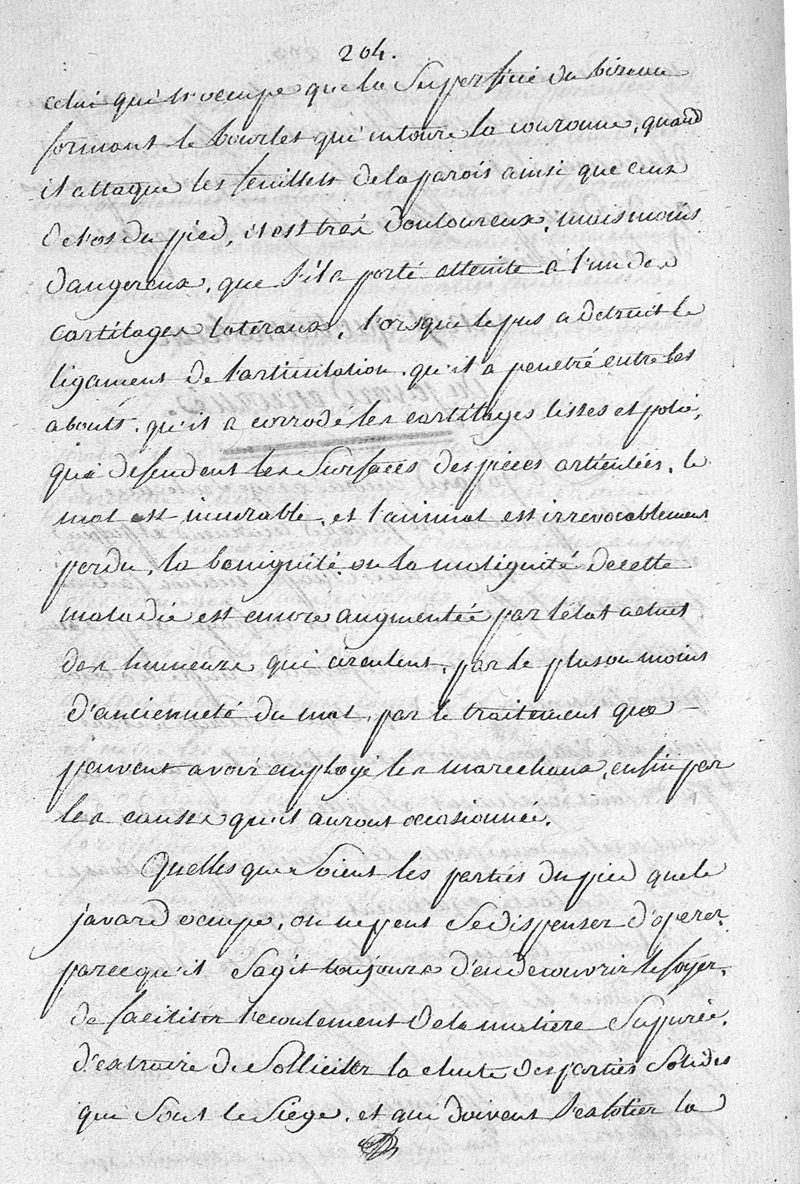 204.
celui qui n'occupe que la Superficie du bizeau
formant le bourlet qui entoure la couronne, quand
il attaque les feuillets de la parois ainsi que ceux
de l'os du pied, il est trés douloureux, mais moins
dangereux, que s'il a porté atteinte a l'un des
cartilages lateraux, lorsque le pus a detruit le
ligament de l'articulation, qu'il a penetré entre les
abouts, qu'il a corrodé les cartilages lisses et poli,
qui defendent les Surfaces des pieces articulées, le
mal est incurable, et l'animal est irrevocablement
perdu, la benignité ou la malignité de cette
maladie est encore augmentée par l'état actuel
des humeurs qui circulent, par le plus ou moins
d'ancienneté du mal, par le traitement que
peuvent avoir employe les marechaux, enfin par
les causes qui l'auront occasionnée.
Quelles que Soient les parties du pied que le
javard occupe, on ne peut Se dispenser d'operer,
parce qu'il S'agit toujours d'en decouvrir le foyer,
de faciliter l'ecoulement de la matiere Suppurée,
d'extraire de Solliciter la chute des parties Solides
qui Sont le Siege, et qui doivent la